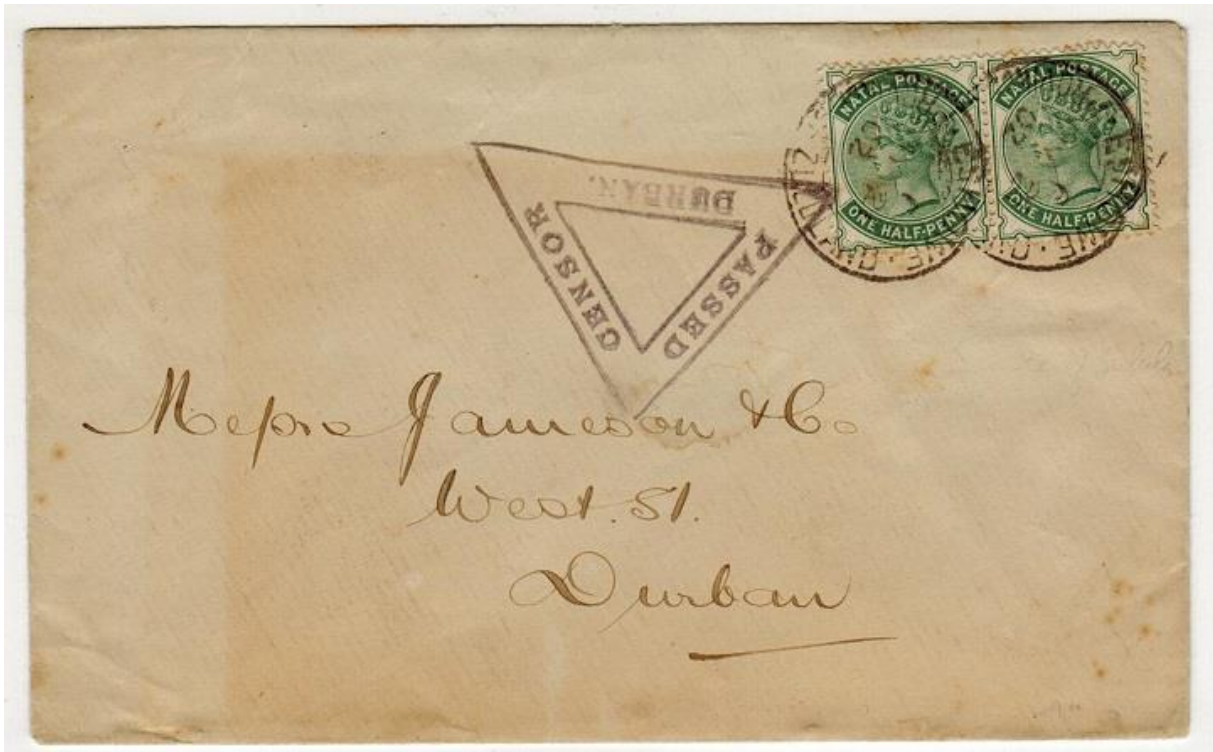 NATAL POSTAGE
ONE HALF-PENNY
NATAL POSTAGE
ONE HALF-PENNY
DURBAN.
CENSOR
PASSED
Messrs Jameson & Co
West. St.
Durban